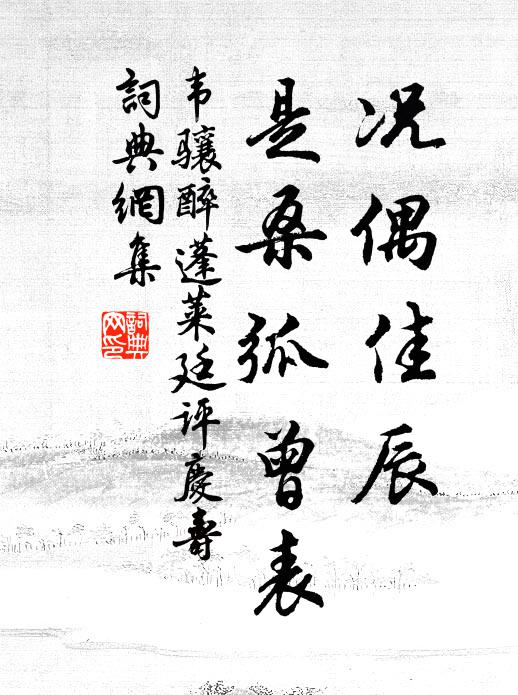 况偶佳辰
是桑弧曾表
韦骧醉蓬莱廷评慶壽
詞典網集
詞典